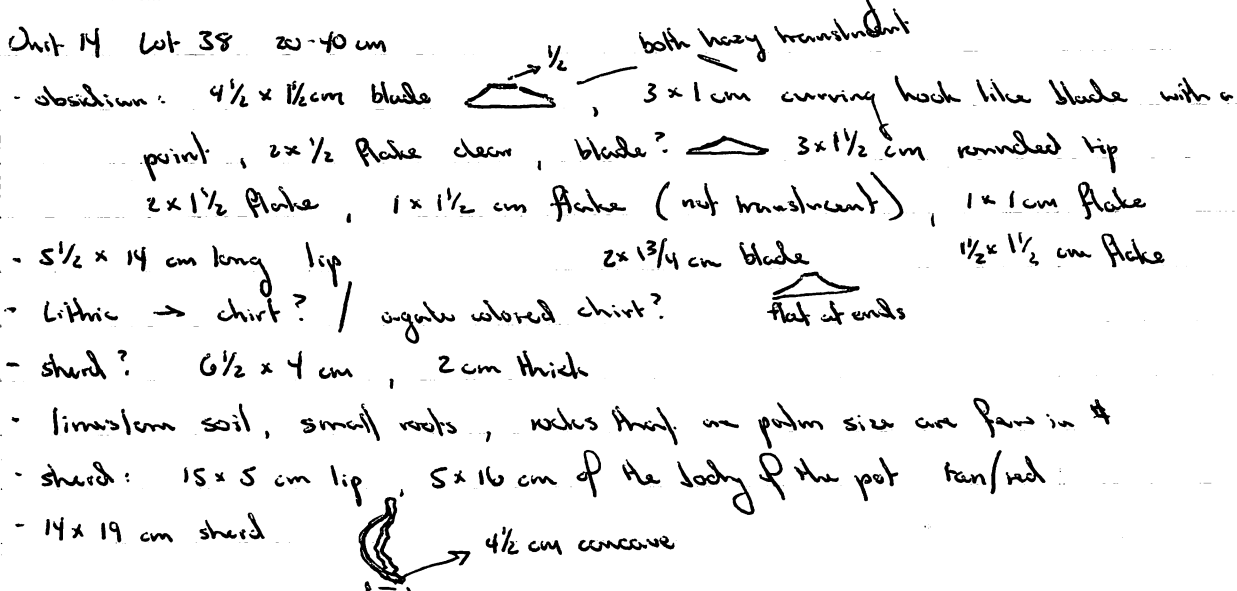 Unit 14 Lot 38 20-40 cm
1/2
both hazy translucent
- obsidian: 4 1/2 x 1 1/2 cm blade , 3 x 1 cm curving hook like blade with a
point, 2 x 1/2 flake clear, blade? 3 x 1 1/2 cm rounded tip
2 x 1 1/2 flake, 1 x 1 1/2 cm flake (not translucent), 1 x 1 cm flake
- 5 1/2 x 14 cm long lip 2 x 1 3/4 cm blade 1 1/2 x 1 1/2 cm flake
- Lithic → chirt? / agate colored chirt? flat at ends
- sherd? 6 1/2 x 4 cm, 2 cm thick
- limestone soil, small roots, rocks that are palm size are few in #
- sherd: 15 x 5 cm lip, 5 x 16 cm of the body of the pot tan/red
- 14 x 19 cm sherd → 4 1/2 cm concave